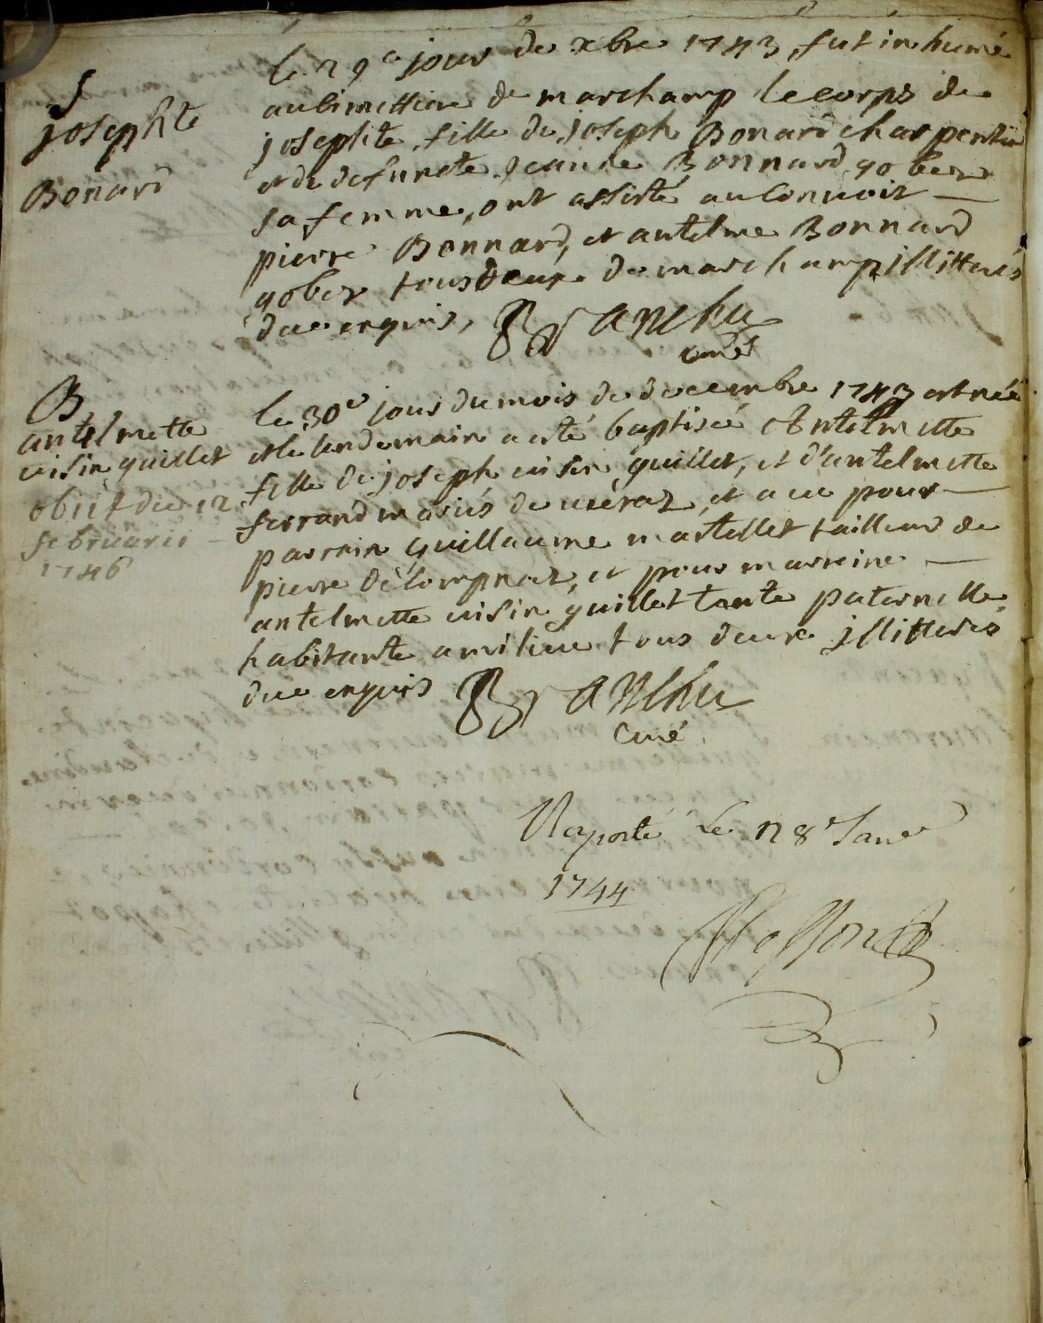 S
josephte
Bonard
le 29e jour de xbre 1743, fut inhumé
au cimettiere de marchamp le corps de
josephte, fille de joseph Bonard charpentier
et de defuncte jeanne Bonnard gober
sa femme, ont assisté au convoit
pierre Bonnard, et antelme Bonnard
gober tous deux de marchamp illitterés
due enquis, Branchu
curé
B
antelmette
cuisin quillet
obiit die 12
februarii
1746
le 30e jour du mois de decembre 1743 est née
et le lendemain a esté baptisée Antelmette
fille de joseph cuisin quillet, et d'antelmette
ferrand mariés de cueraz, et a eu pour
parrain guillaume martellet tailleur de
pierre de lompnaz, et pour marreine
antelmette cuisin quillet tante paternelle,
habitante amilieu tous deux jllitterés
due enquis Branchu
Curé
Raporté Le 28e Janer
1744